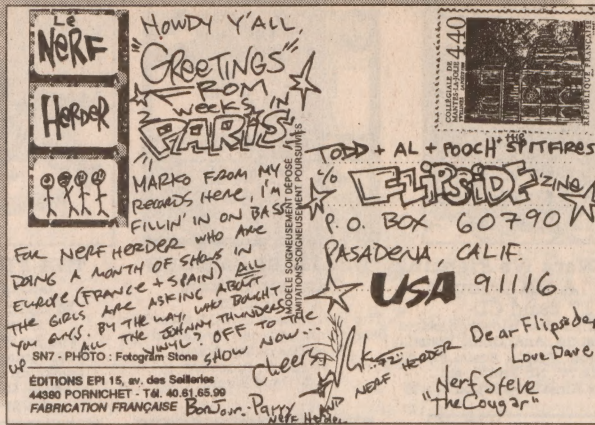 Le
NERF
HERDER
HOWDY Y'ALL,
"GREETINGS"
FROM
2 WEEKS IN
"PARIS"
MARKO FROM MY
RECORDS HERE, I'M
FILLIN' IN ON BASS
FOR NERF HERDER WHO ARE
DOING A MONTH OF SHOWS IN
EUROPE (FRANCE + SPAIN) ALL
THE GIRLS ARE ASKING ABOUT
YOU GUYS. BY THE WAY, WHO BOUGHT
UP ALL THE JOHNNY THUNDERS
VINYL? OFF TO THE
SHOW NOW...
Cheers
SN7 - PHOTO : Fotogram Stone
ÉDITIONS EPI 15, av. des Seilleries
44380 PORNICHET - Tél. 40.61.65.99
FABRICATION FRANÇAISE
BonJour. Parry
NERF HERDER
MODÈLE SOIGNEUSEMENT DÉPOSÉ
IMITATIONS SOIGNEUSEMENT POURSUIVIES
COLLÉGIALE DE
MANTES-LA-JOLIE
4,40
RÉPUBLIQUE FRANÇAISE
TODD + AL + POOCH + THE SPITFIRES
c/o FLIPSIDE ZINE
P.O. BOX 60790
PASADENA, CALIF.
USA 91116
AND NERF HERDER
Dear Flipside,
Love Dave
"Nerf Steve
The Cougar"